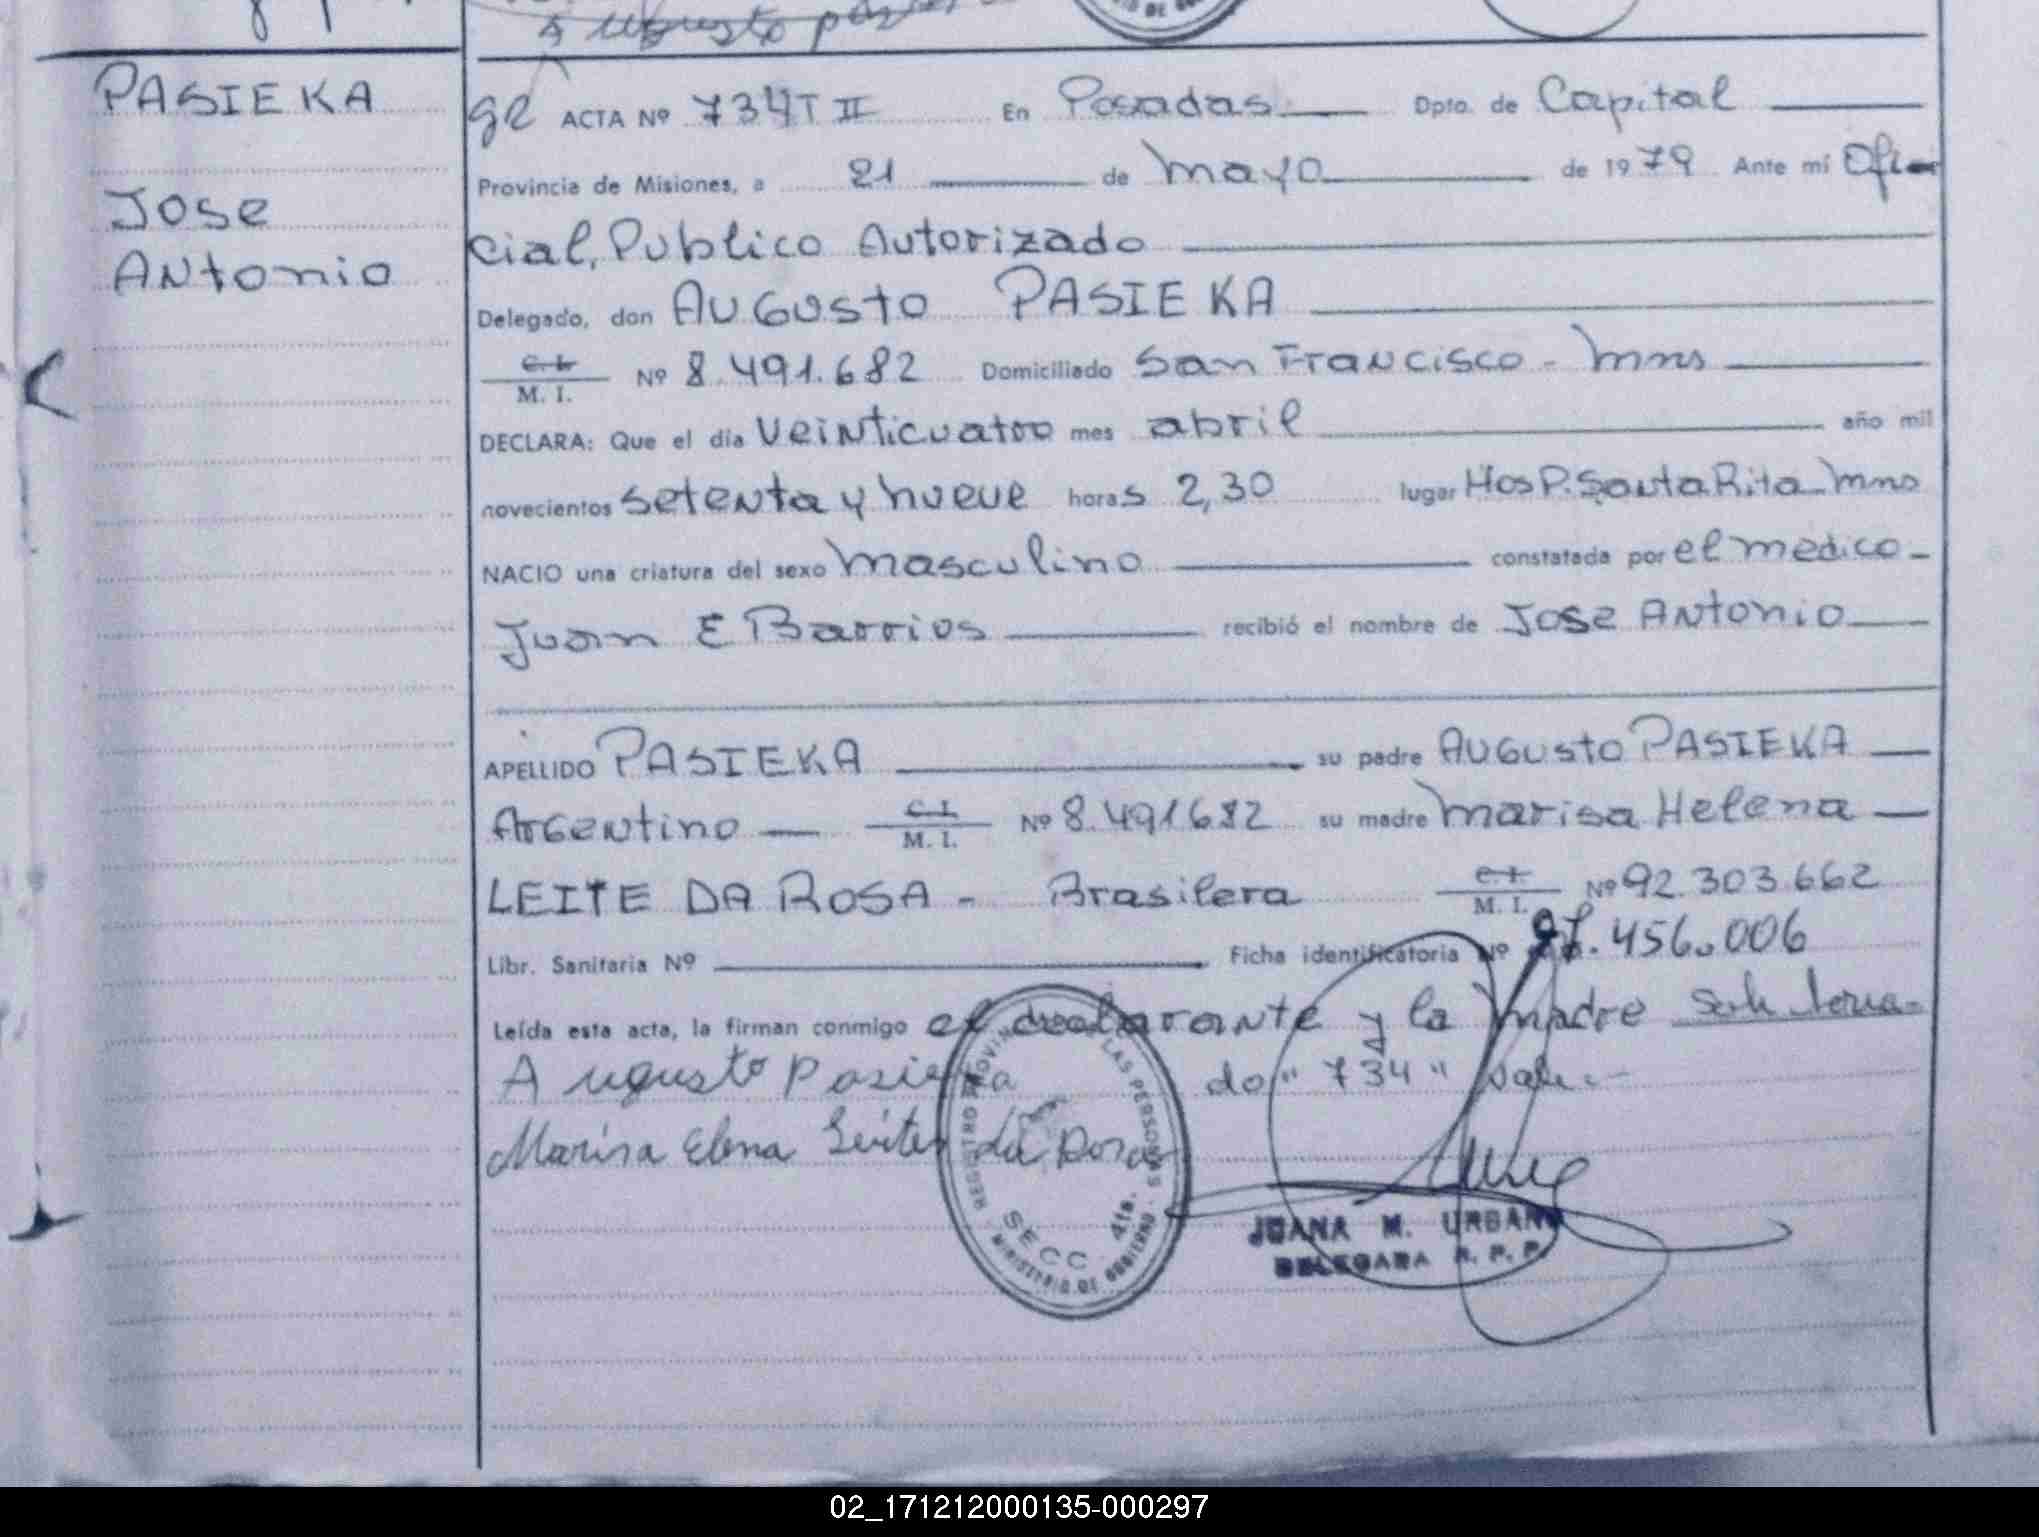 Augusto
PASIEKA
Jose
Antonio
ACTA Nº 734 T II En Posadas Dpto. de Capital
Provincia de Misiones, a 21 de Mayo de 1979 Ante mí Ofi
cial, Publico Autorizado
Delegado, don AUGusto PASIEKA
C. I. / M. I. Nº 8.491.682 Domiciliado San Francisco - Mns
DECLARA: Que el día veinticuatro mes abril año mil
novecientos setenta y nueve horas 2,30 lugar Hosp. Santa Rita - Mns
NACIO una criatura del sexo Masculino constatada por el medico -
Juan E Barrios recibió el nombre de Jose Antonio
APELLIDO PASIEKA su padre AUGusto PASIEKA
Argentino C. I. / M. I. Nº 8.491682 su madre Marisa Helena
LEITE DA ROSA - Brasilera C. I. / M. I. Nº 92.303.662
Libr. Sanitaria Nº Ficha identificatoria Nº 27.456.006
Leída esta acta, la firman conmigo el declarante y la madre
Augusto Pasieka do "734" vale.-
Marisa Elena Leites da Rosa
REGISTRO PROVINCIAL DE LAS PERSONAS
SECC. 4ta.
MINISTERIO DE GOBIERNO
JUANA M. URBANO
DELEGADA R. P. P.
02_171212000135-000297